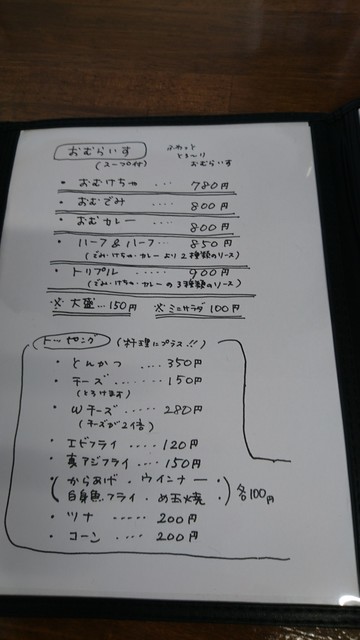 おむらいす
(スープ付)
ふわっと
とろ〜り
おむらいす
・ おむけちゃ .... 780円
・ おむでみ .... 800円
・ おむカレー .... 800円
・ ハーフ&ハーフ... 850円
(でみ・けちゃ・カレーより2種類のソース)
・ トリプル ..... 900円
(でみ・けちゃ・カレーの3種類のソース)
※ 大盛...150円 ※ ミニサラダ 100円
トッピング (料理にプラス!!)
・ とんかつ .... 350円
・ チーズ...... 150円
(とろけます)
・ Wチーズ..... 280円
(チーズが2倍)
・ エビフライ .... 120円
・ 真アジフライ .... 150円
(からあげ・ウインナー・
自身魚フライ・め玉焼・) 各100円
・ ツナ ..... 200円
・ コーン .... 200円